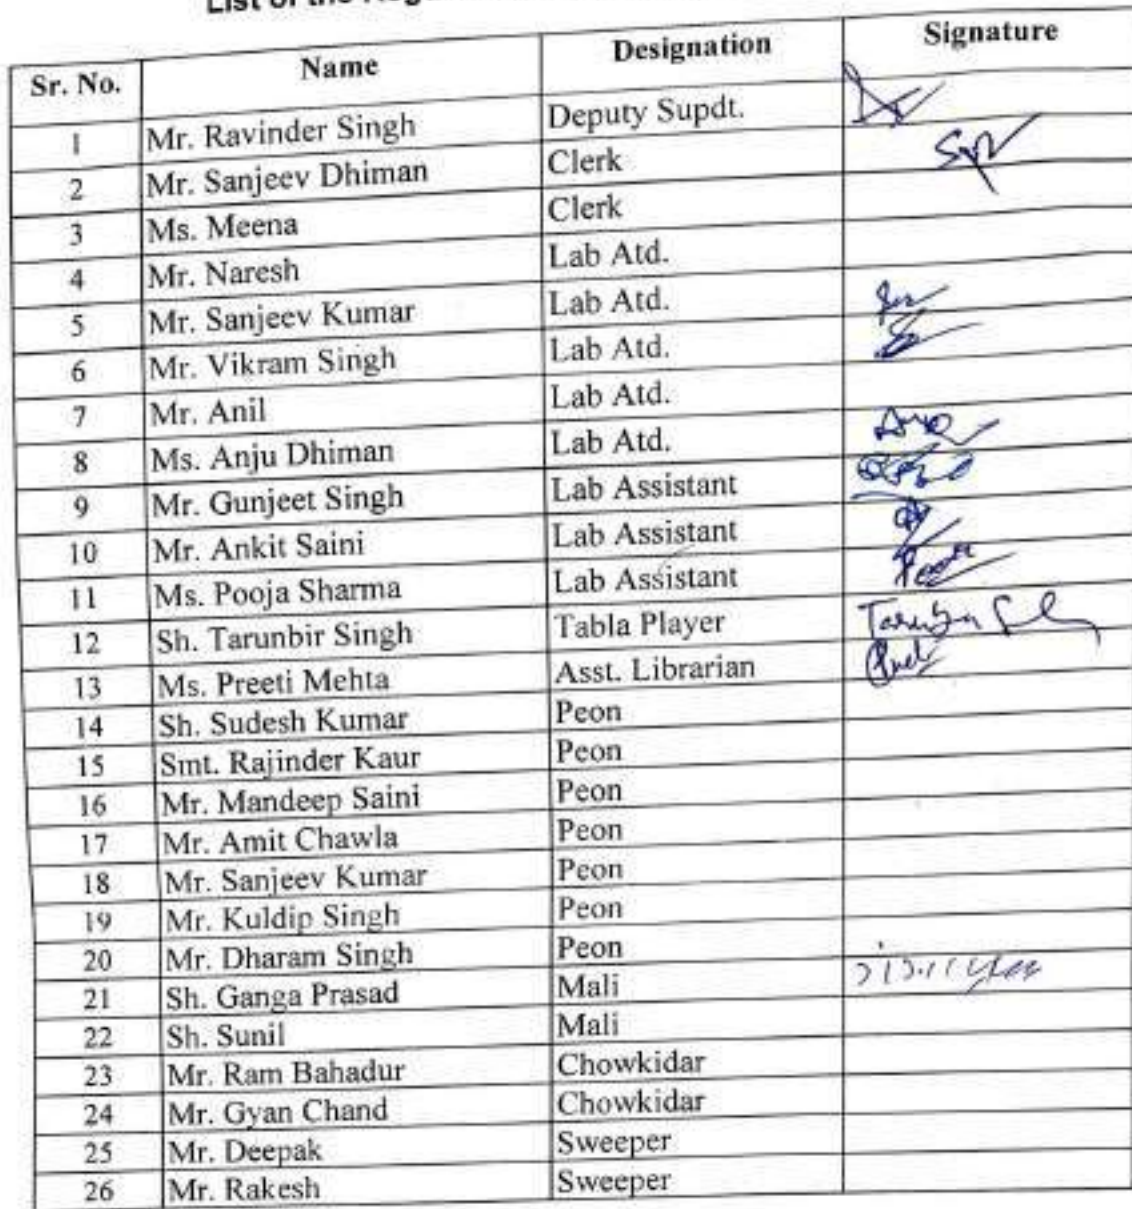 List of the
Sr. No. Name Designation Signature
1 Mr. Ravinder Singh Deputy Supdt.
2 Mr. Sanjeev Dhiman Clerk
3 Ms. Meena Clerk
4 Mr. Naresh Lab Atd.
5 Mr. Sanjeev Kumar Lab Atd.
6 Mr. Vikram Singh Lab Atd.
7 Mr. Anil Lab Atd.
8 Ms. Anju Dhiman Lab Atd.
9 Mr. Gunjeet Singh Lab Assistant
10 Mr. Ankit Saini Lab Assistant
11 Ms. Pooja Sharma Lab Assistant
12 Sh. Tarunbir Singh Tabla Player
13 Ms. Preeti Mehta Asst. Librarian
14 Sh. Sudesh Kumar Peon
15 Smt. Rajinder Kaur Peon
16 Mr. Mandeep Saini Peon
17 Mr. Amit Chawla Peon
18 Mr. Sanjeev Kumar Peon
19 Mr. Kuldip Singh Peon
20 Mr. Dharam Singh Peon
21 Sh. Ganga Prasad Mali
22 Sh. Sunil Mali
23 Mr. Ram Bahadur Chowkidar
24 Mr. Gyan Chand Chowkidar
25 Mr. Deepak Sweeper
26 Mr. Rakesh Sweeper